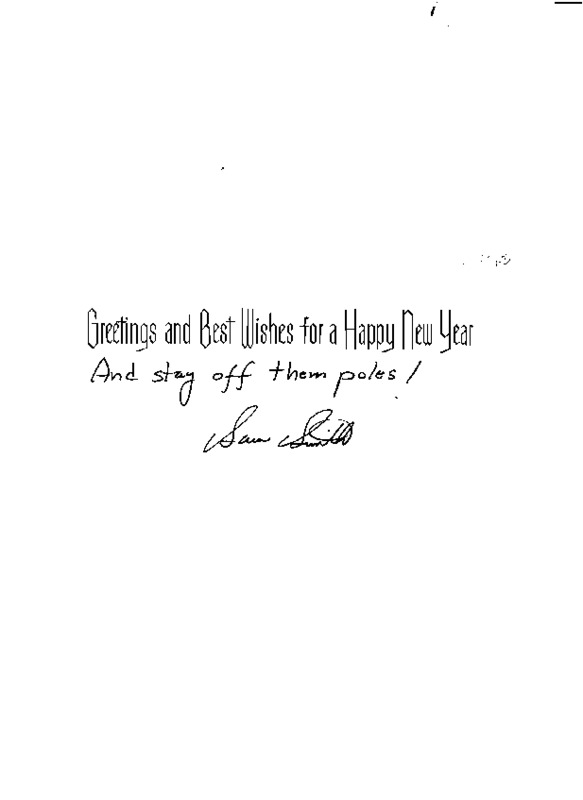 Greetings and Best Wishes for a Happy New Year
And stay off them poles!
Sam Smith